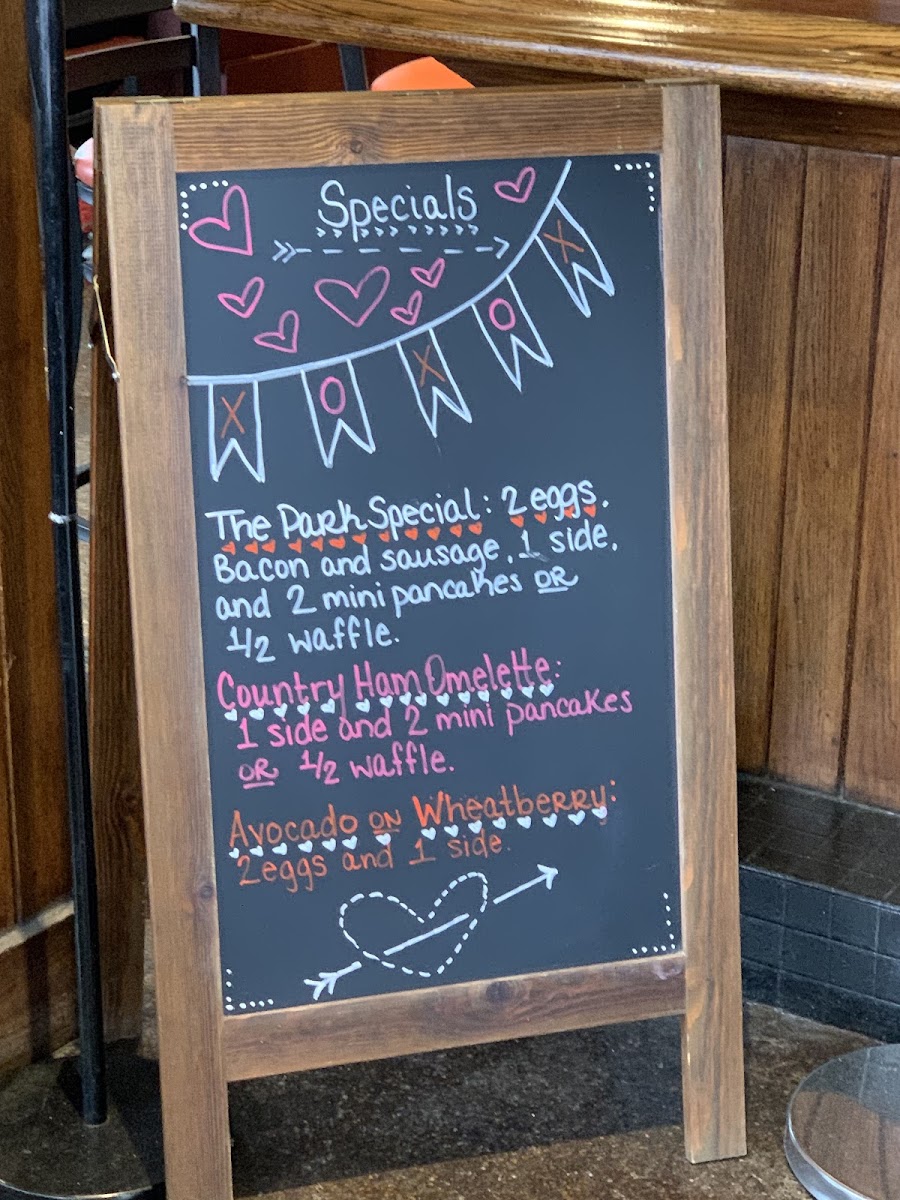 Specials
X O X O X
The Park Special: 2 eggs,
Bacon and sausage, 1 side,
and 2 mini pancakes OR
1/2 waffle.
Country Ham Omelette:
1 side and 2 mini pancakes
OR 1/2 waffle.
Avocado ON Wheatberry:
2eggs and 1 side.